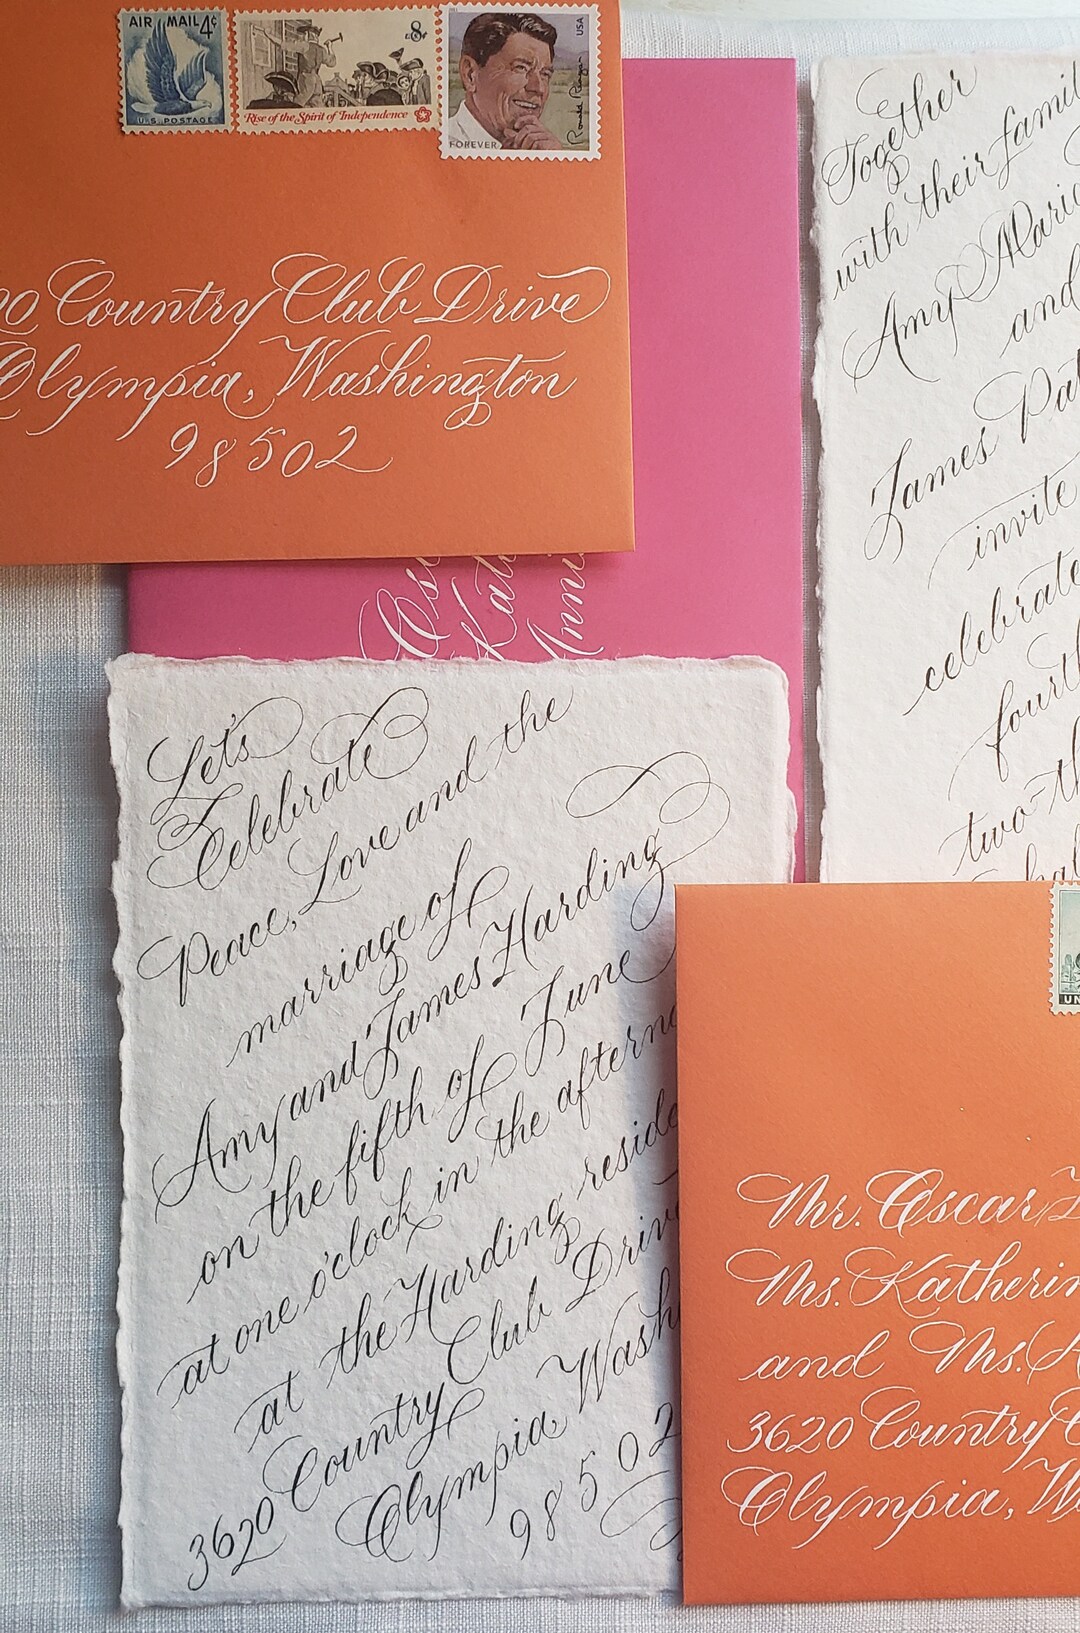 AIR MAIL 4¢
U.S. POSTAGE
8¢
Rise of the Spirit of Independence
USA
Ronald Reagan
FOREVER
Country Club Drive
Olympia, Washington
98502
Together
with their
Amy Marie
and
James
invite
celebrate
Let's
Celebrate
Peace, Love and the
marriage of
Amy and James Harding
on the fifth of June
at one o'clock in the
at the Harding
3620 Country Club
Olympia
98502
Mr. Oscar
Ms.
and Ms.
3620 Country
Olympia,